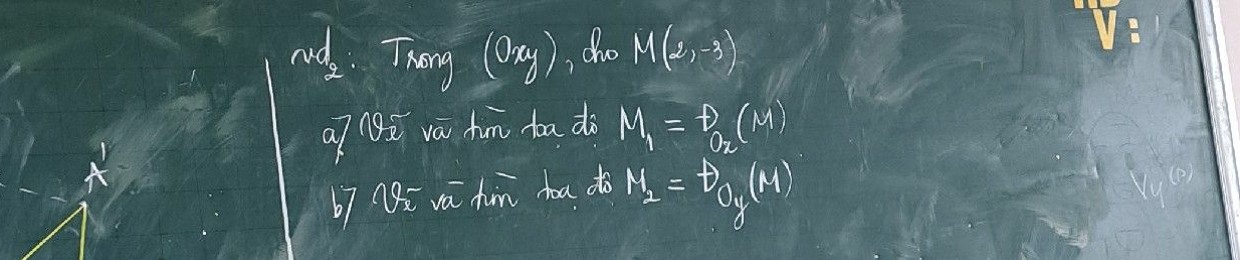 vd₂: Trong (Oxy), cho M(2,-3)
a) Vẽ và tìm tọa độ M₁ = Đ_Ox(M)
b) Vẽ và tìm tọa độ M₂ = Đ_Oy(M)
A'
V: